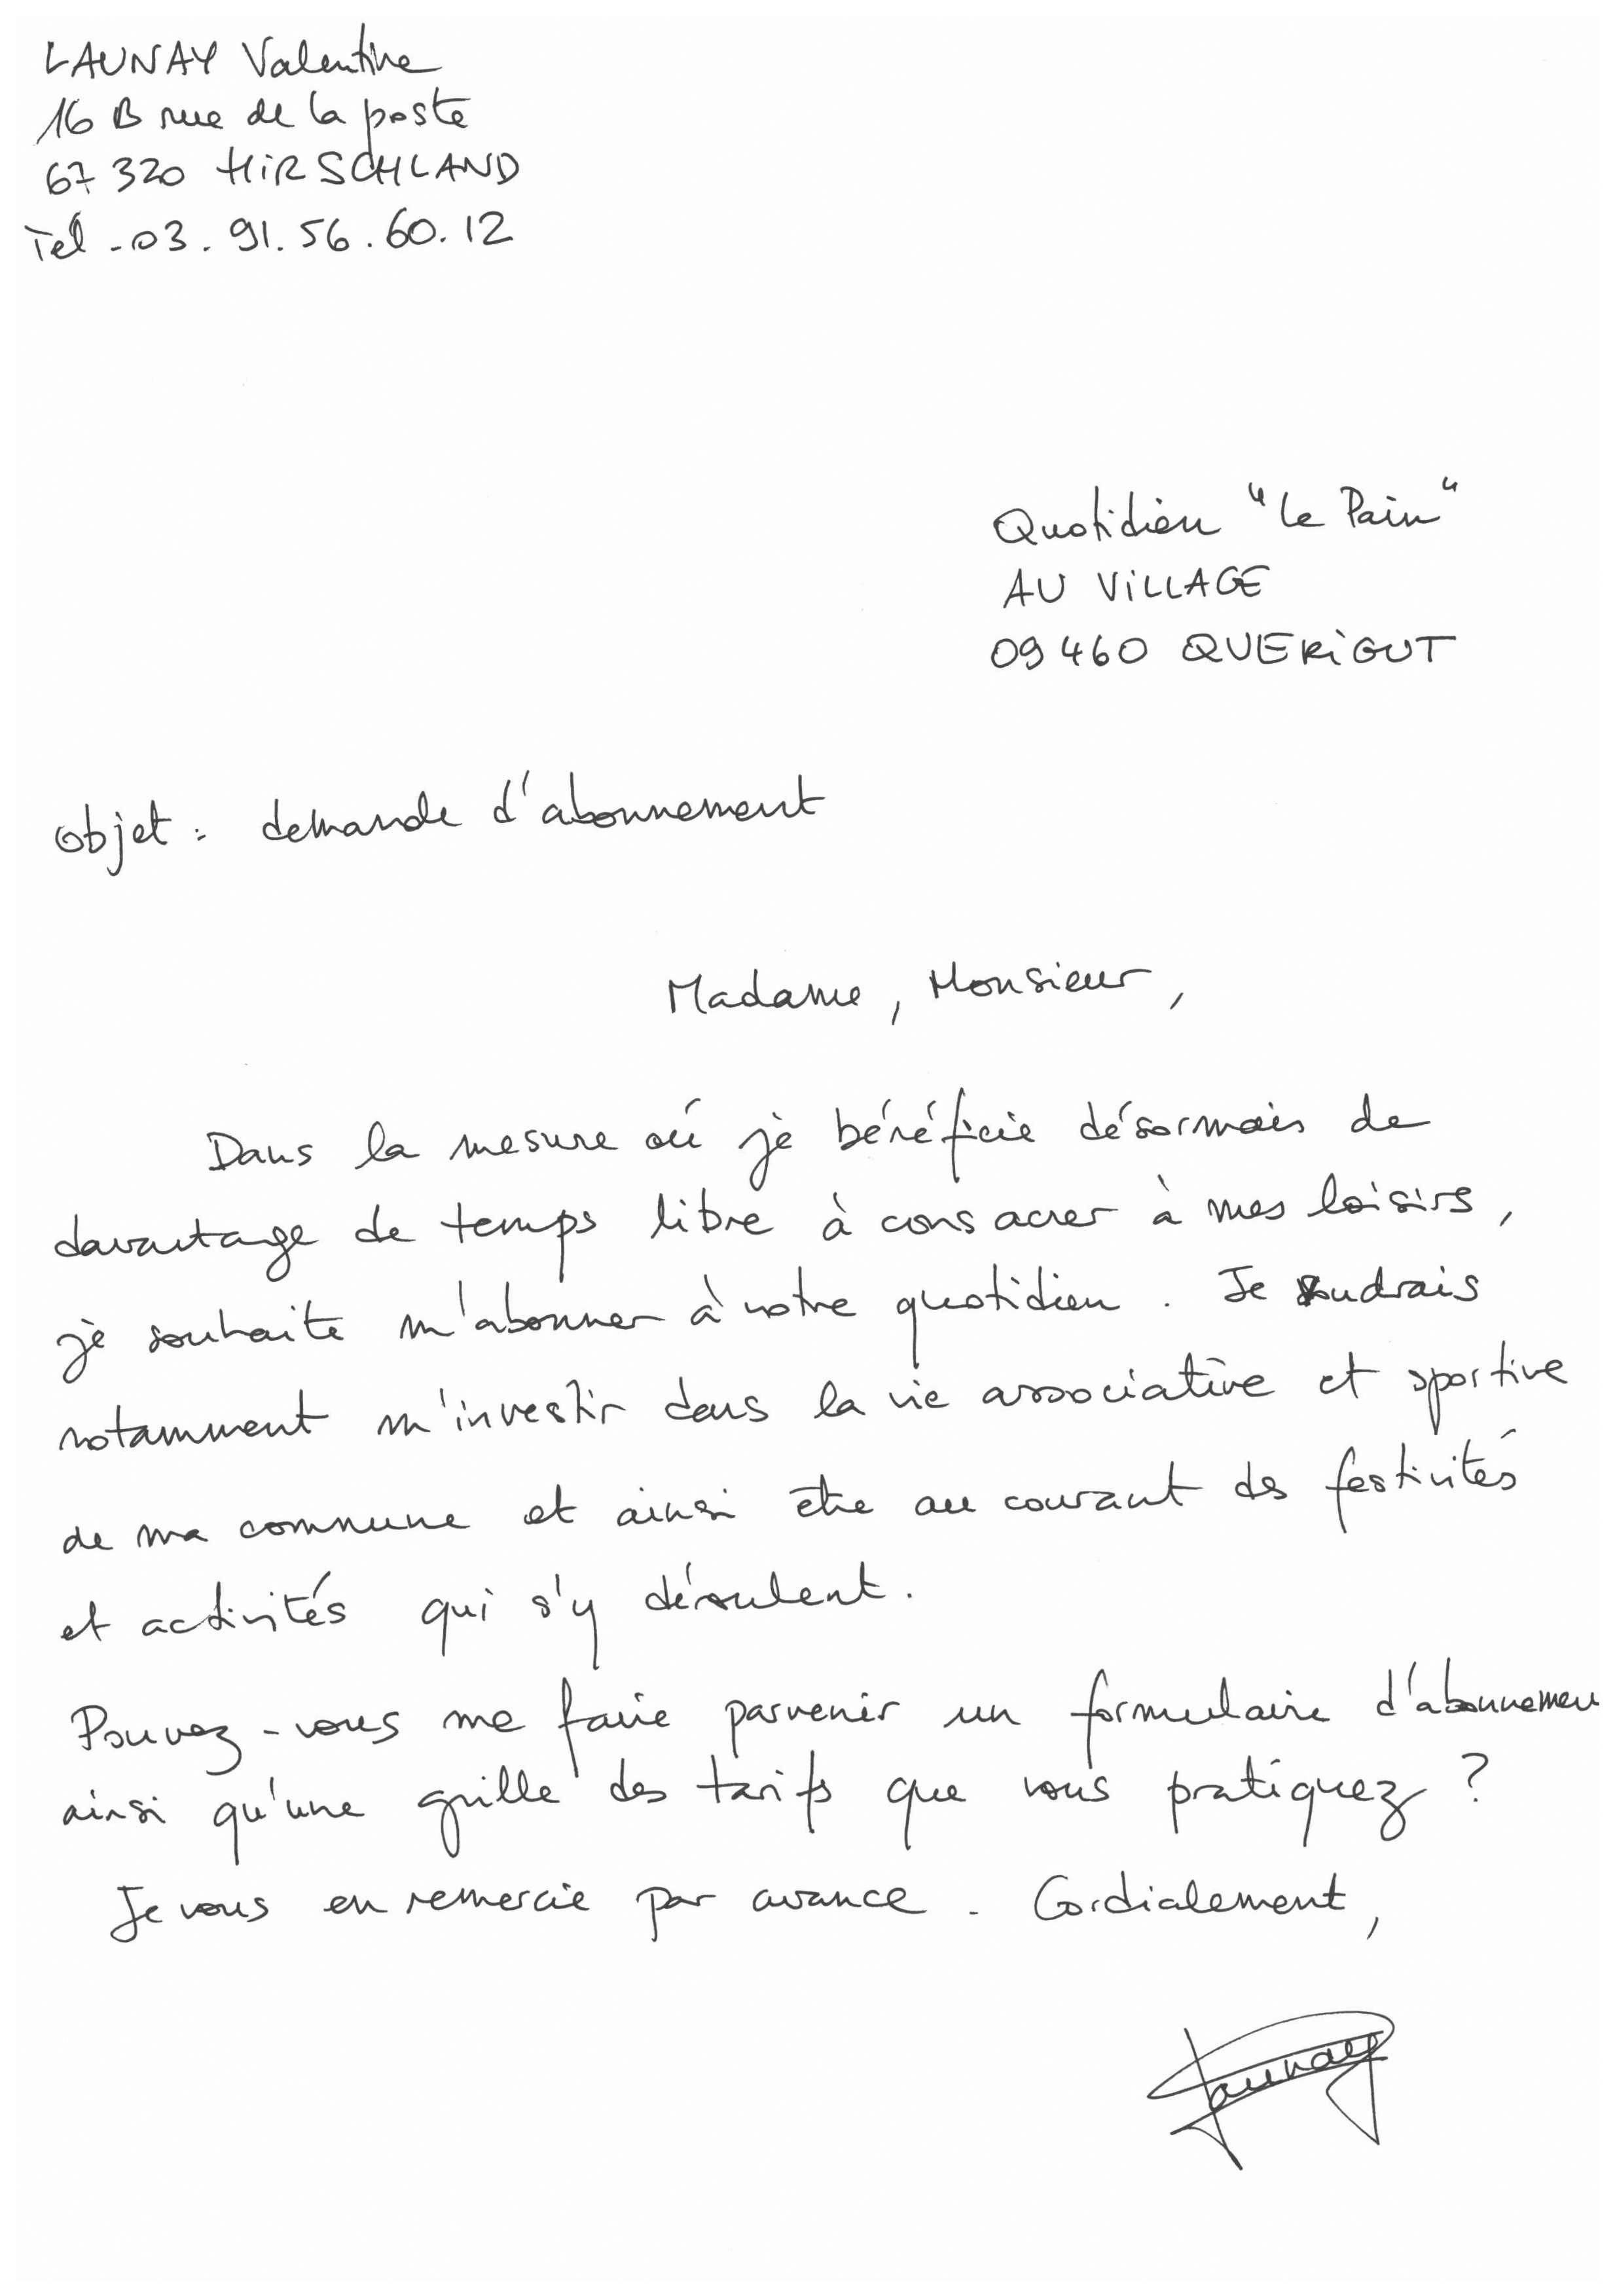 LAUNAY Valentine
16 B rue de la poste
67 320 HiRSCHLAND
Tel - 03. 91. 56. 60. 12
Quotidien "Le Pain"
AU ViLLAGE
09 460 QUERiGUT
Objet : demande d'abonnement
Madame, Monsieur,
Dans la mesure où je bénéficie désormais de
davantage de temps libre à consacrer à mes loisirs,
je souhaite m'abonner à votre quotidien. Je voudrais
notamment m'investir dans la vie associative et sportive
de ma commune et ainsi être au courant des festivités
et activités qui s'y déroulent.
Pouvez-vous me faire parvenir un formulaire d'abonnemen
ainsi qu'une grille des tarifs que vous pratiquez ?
Je vous en remercie par avance. Cordialement,
Launay